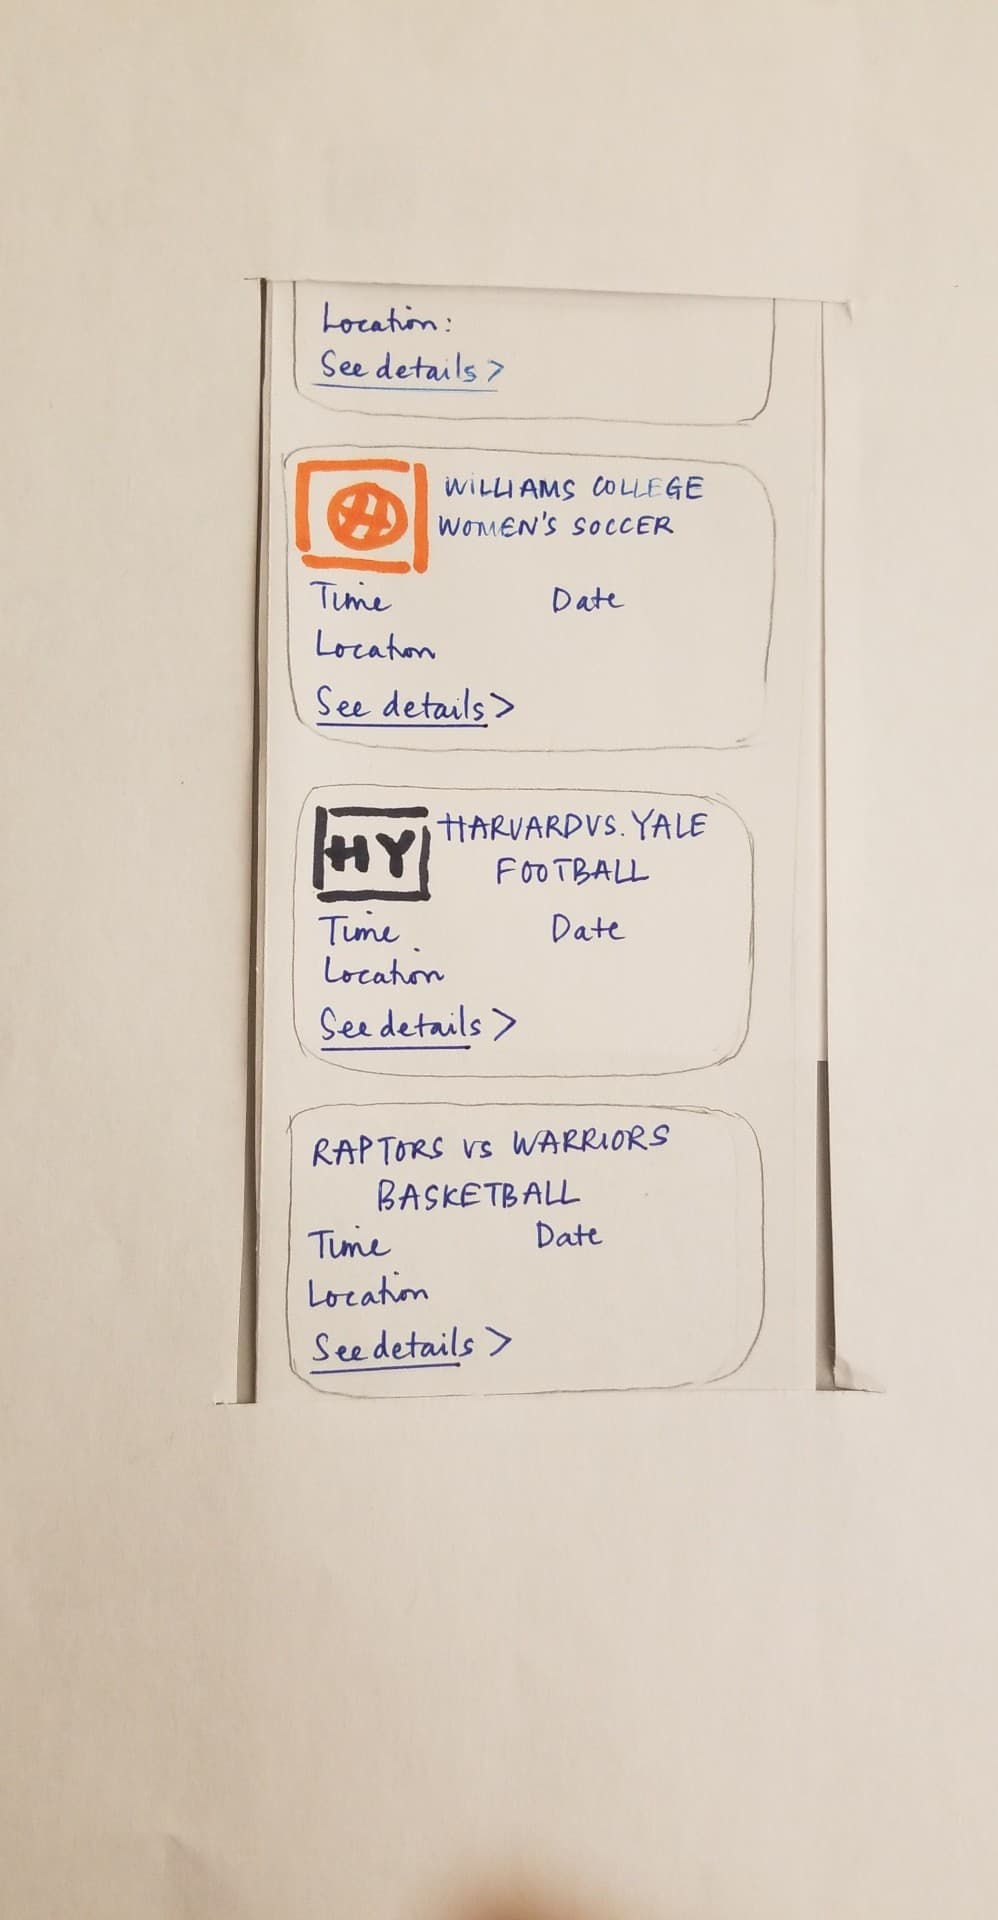 Location:
See details >
WILLIAMS COLLEGE
WOMEN'S SOCCER
Time Date
Location
See details >
HY HARVARD VS. YALE
FOOTBALL
Time Date
Location
See details >
RAPTORS VS WARRIORS
BASKETBALL
Time Date
Location
See details >